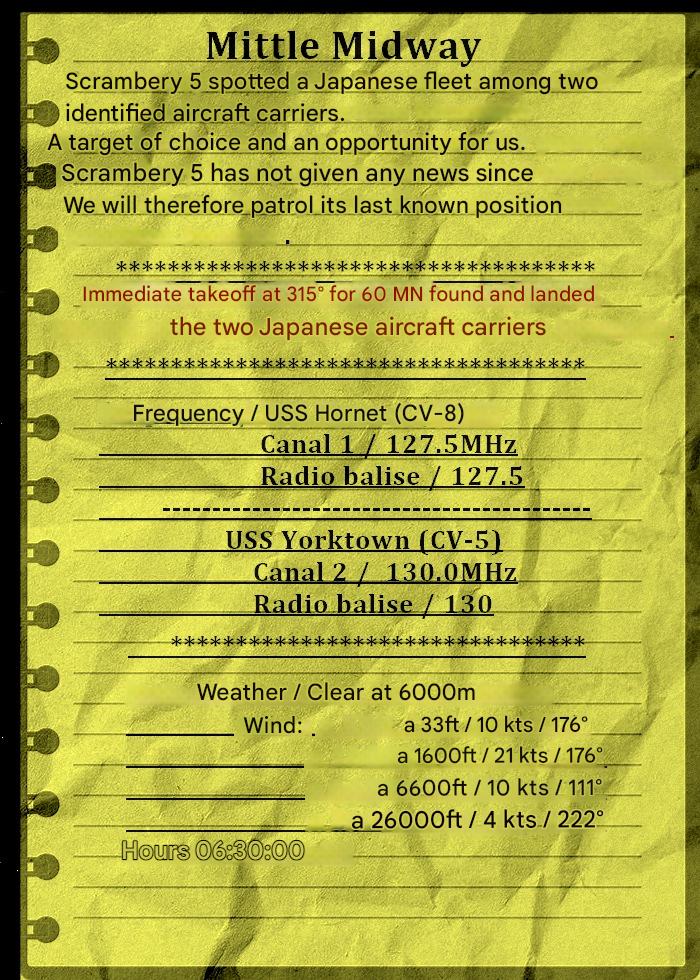 Mittle Midway
Scrambery 5 spotted a Japanese fleet among two
identified aircraft carriers.
A target of choice and an opportunity for us.
Scrambery 5 has not given any news since
We will therefore patrol its last known position
.
*************************************
Immediate takeoff at 315° for 60 MN found and landed
the two Japanese aircraft carriers
*************************************
Frequency / USS Hornet (CV-8)
Canal 1 / 127.5MHz
Radio balise / 127.5
----------------------------------------
USS Yorktown (CV-5)
Canal 2 / 130.0MHz
Radio balise / 130
********************************
Weather / Clear at 6000m
Wind: . a 33ft / 10 kts / 176°
a 1600ft / 21 kts / 176°
a 6600ft / 10 kts / 111°
a 26000ft / 4 kts / 222°
Hours 06:30:00